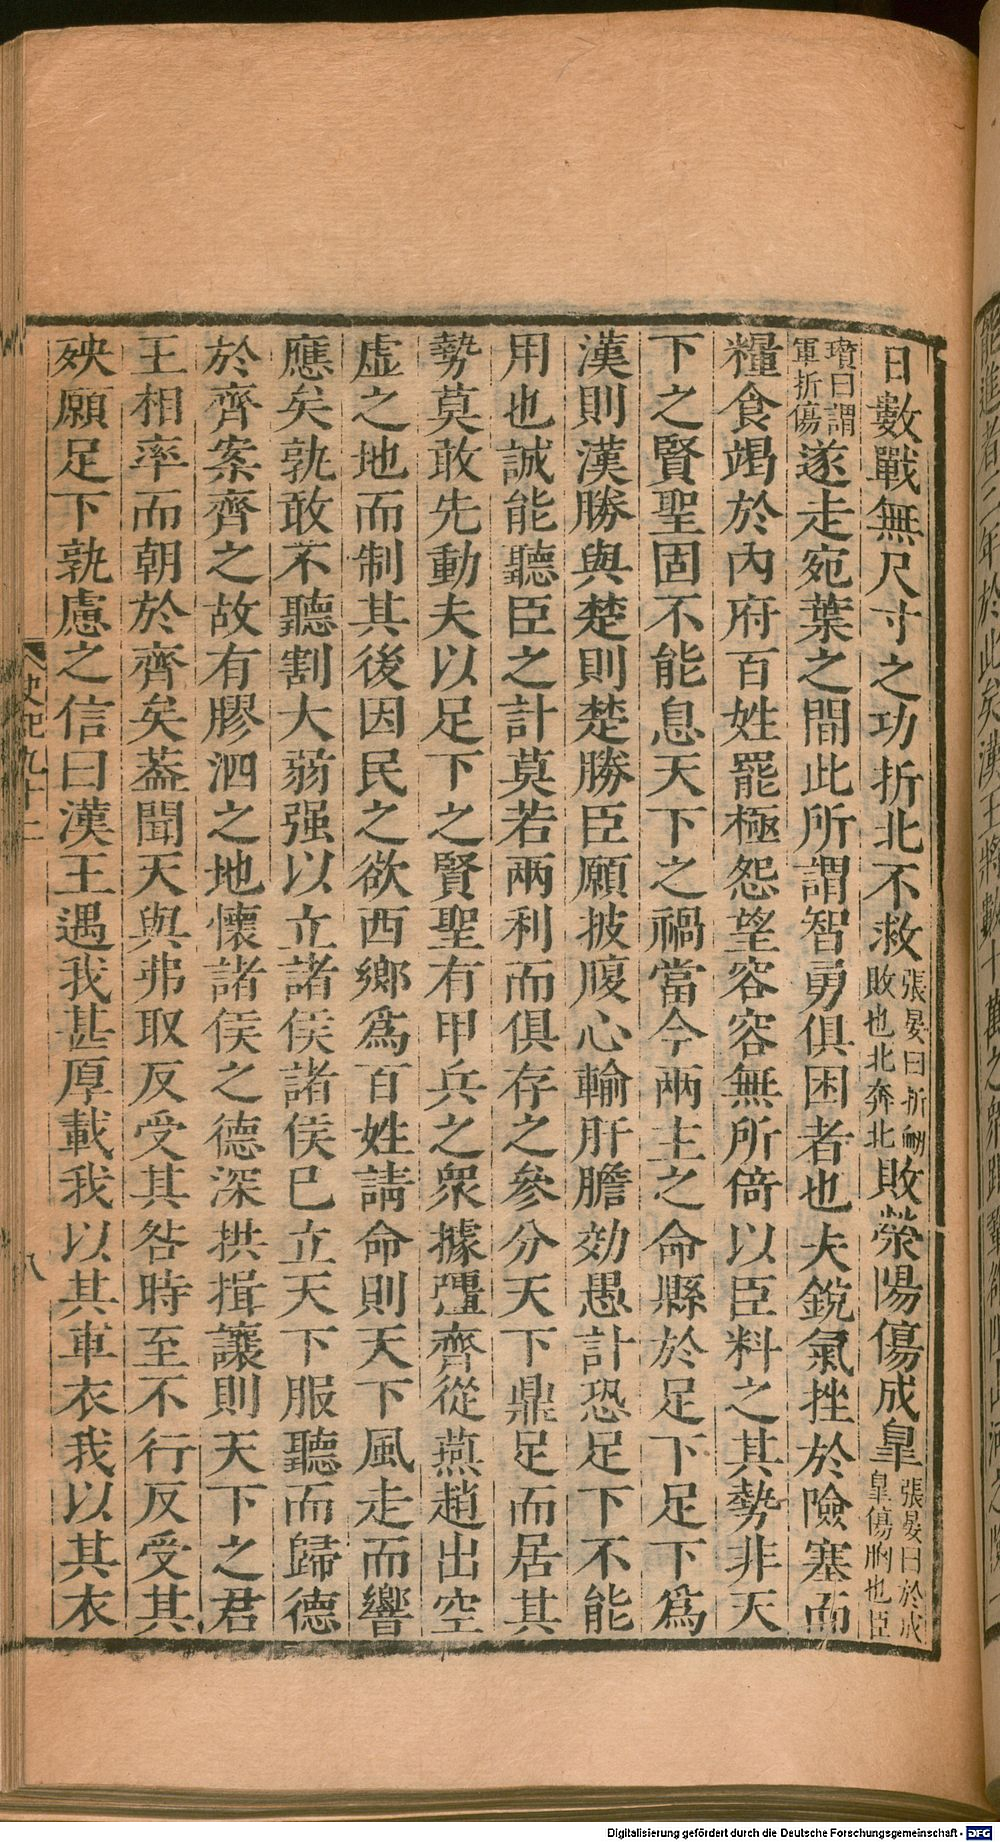 日數戰無尺寸之功折北不救張晏曰折衂敗也北奔北敗滎陽傷成臯張晏曰於成臯傷胸也臣
瓚曰謂軍折傷遂走宛葉之間此所謂智勇俱困者也夫銳氣挫於險塞而
糧食竭於內府百姓罷極怨望容容無所倚以臣料之其勢非天
下之賢聖固不能息天下之禍當今兩主之命縣於足下足下爲
漢則漢勝與楚則楚勝臣願披腹心輸肝膽効愚計恐足下不能
用也誠能聽臣之計莫若兩利而俱存之參分天下鼎足而居其
勢莫敢先動夫以足下之賢聖有甲兵之衆據彊齊從燕趙出空
虛之地而制其後因民之欲西鄉爲百姓請命則天下風走而響
應矣孰敢不聽割大弱强以立諸侯諸侯已立天下服聽而歸德
於齊案齊之故有膠泗之地懷諸侯之德深拱揖讓則天下之君
王相率而朝於齊矣葢聞天與弗取反受其咎時至不行反受其
殃願足下孰慮之信曰漢王遇我甚厚載我以其車衣我以其衣
史記九十二
八
Digitalisierung gefördert durch die Deutsche Forschungsgemeinschaft - DFG